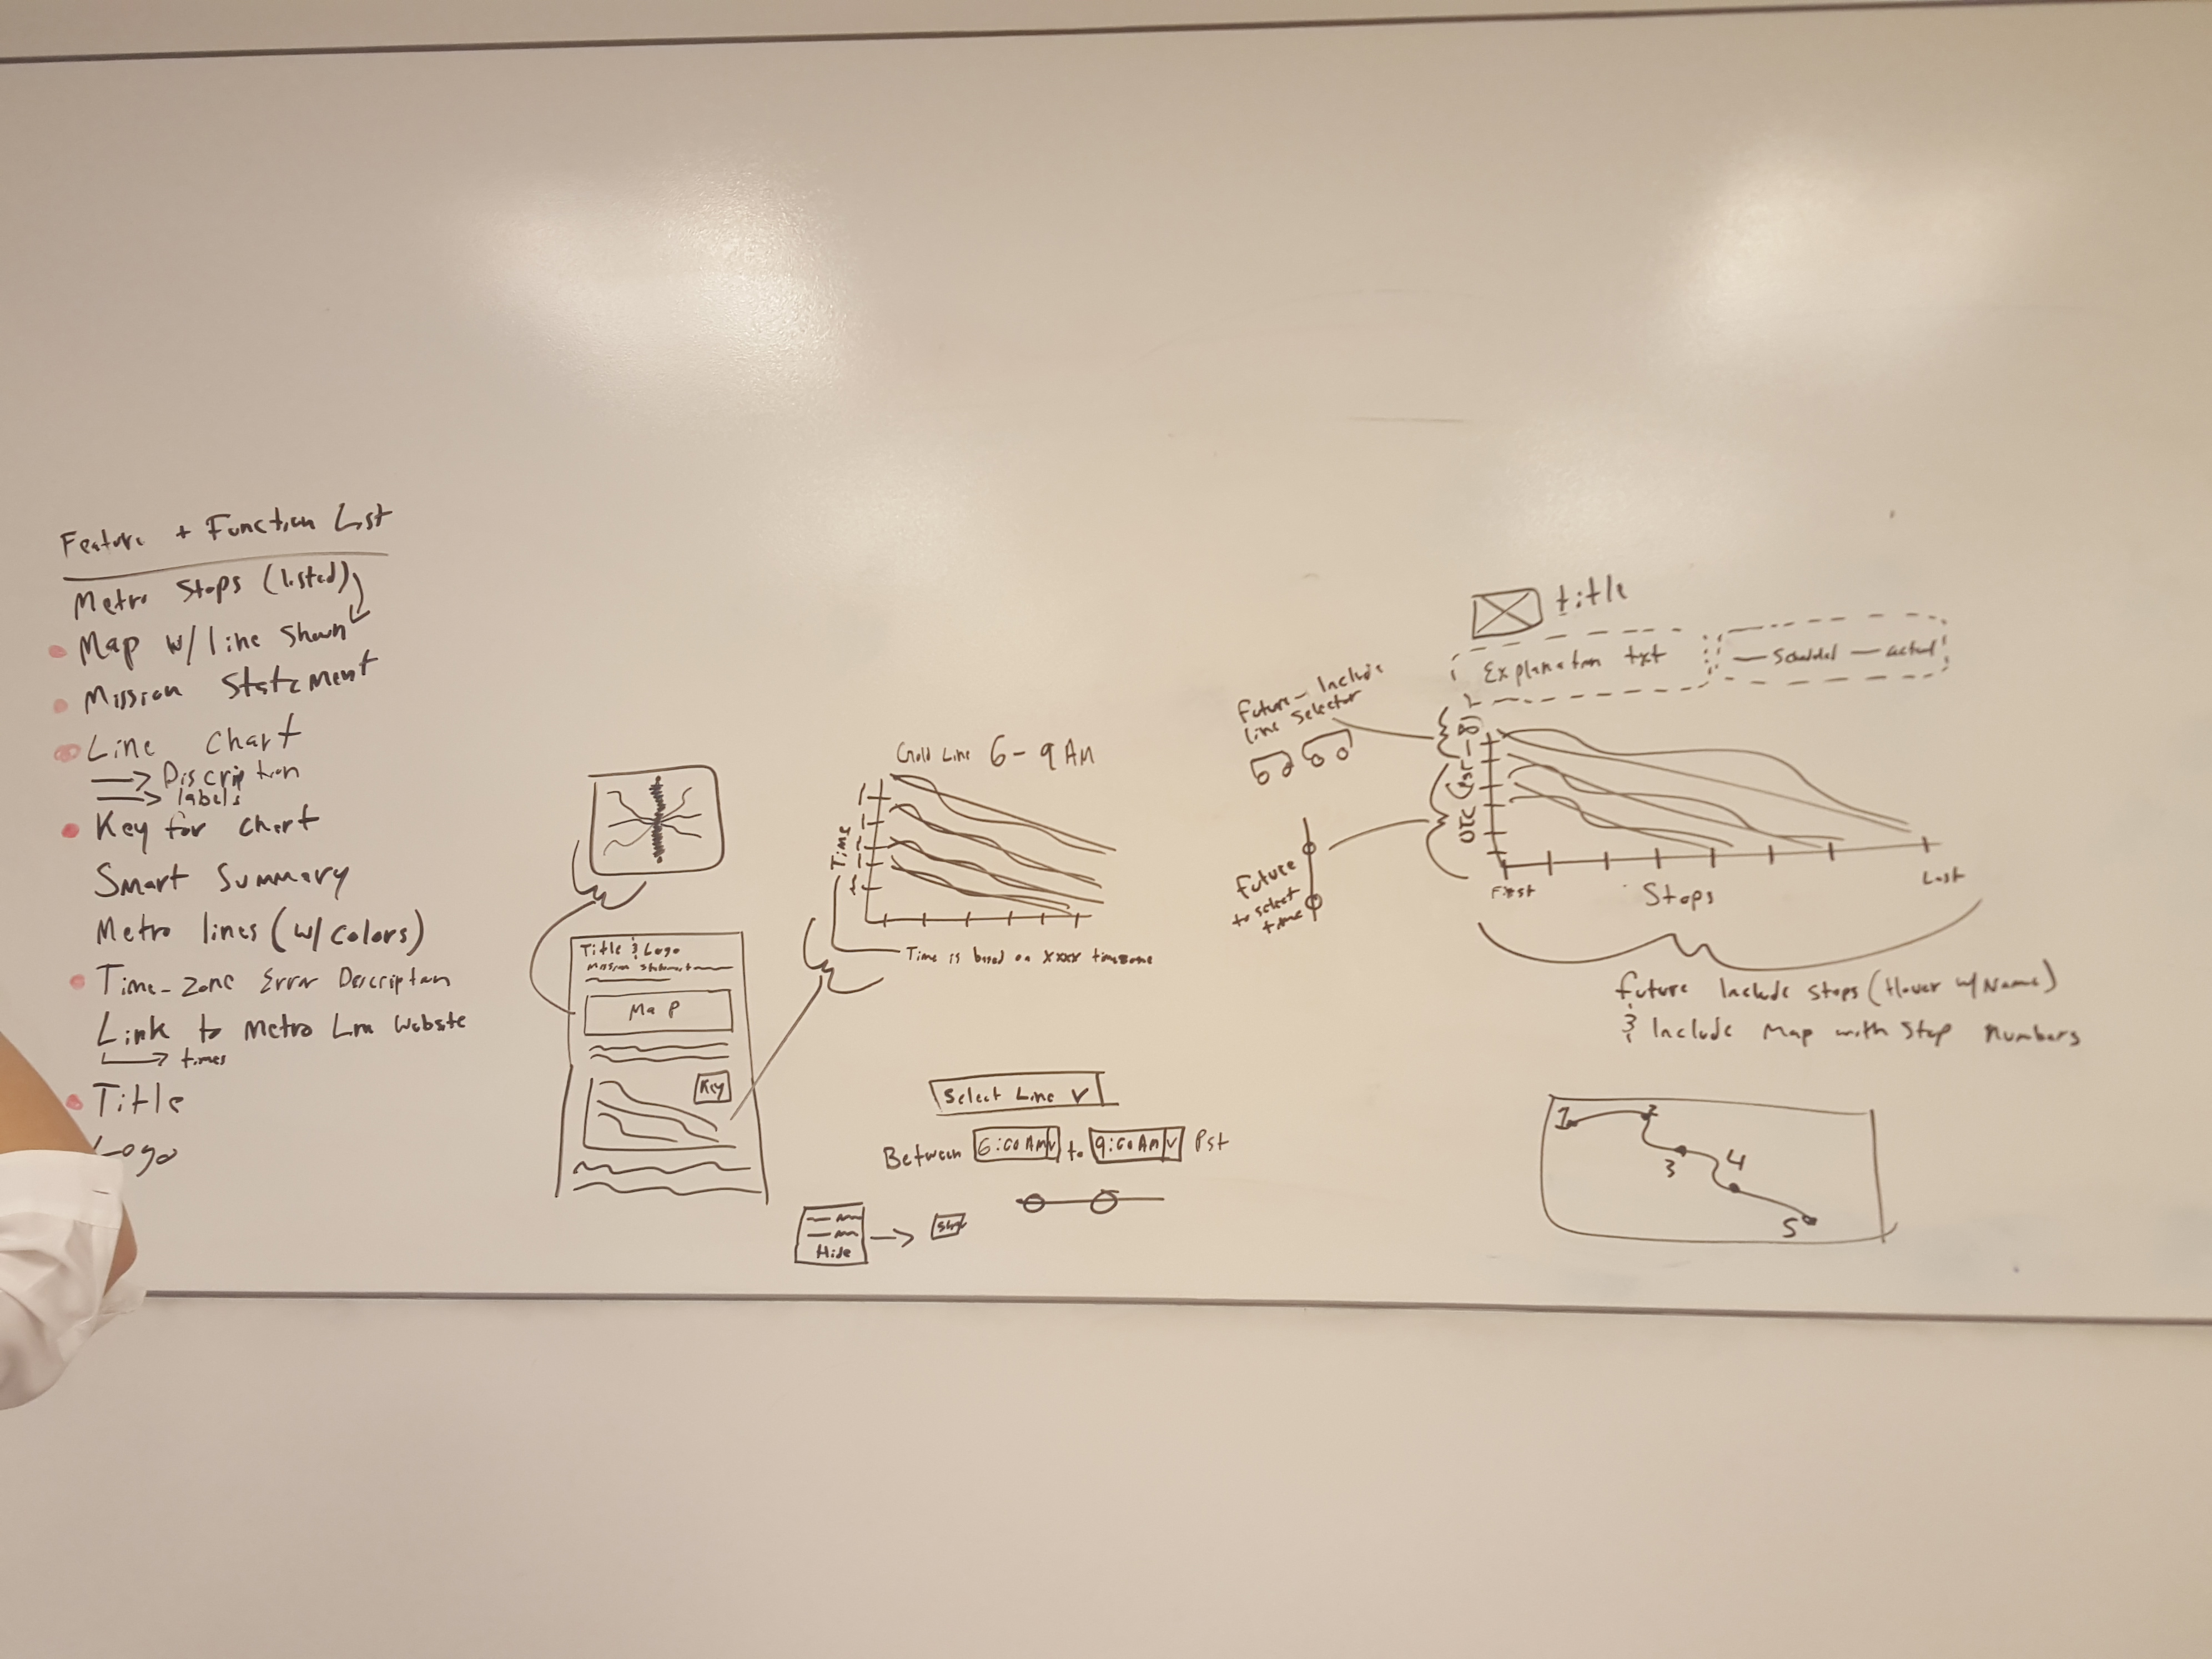 Feature + Function List
Metro Stops (listed)
Map w/ line Shown
Mission Statement
Line Chart
Discription
labels
Key for chart
Smart Summary
Metro lines (w/ colors)
Time-zone Error Description
Link to Metro Website
times
Title
Logo
Title & Logo
Mission Statement
Map
Key
Gold Line 6-9 AM
Time
Time is based on XXXX timezone
Select Line
Between 6:00 AM to 9:00 AM Pst
Hide
future - Include
line selector
future
to select
time
title
Explanation txt
actual
UTC
First
Stops
Last
future Include stops (Hover w/ Name)
& Include Map with Stop Numbers
1
2
3
4
5